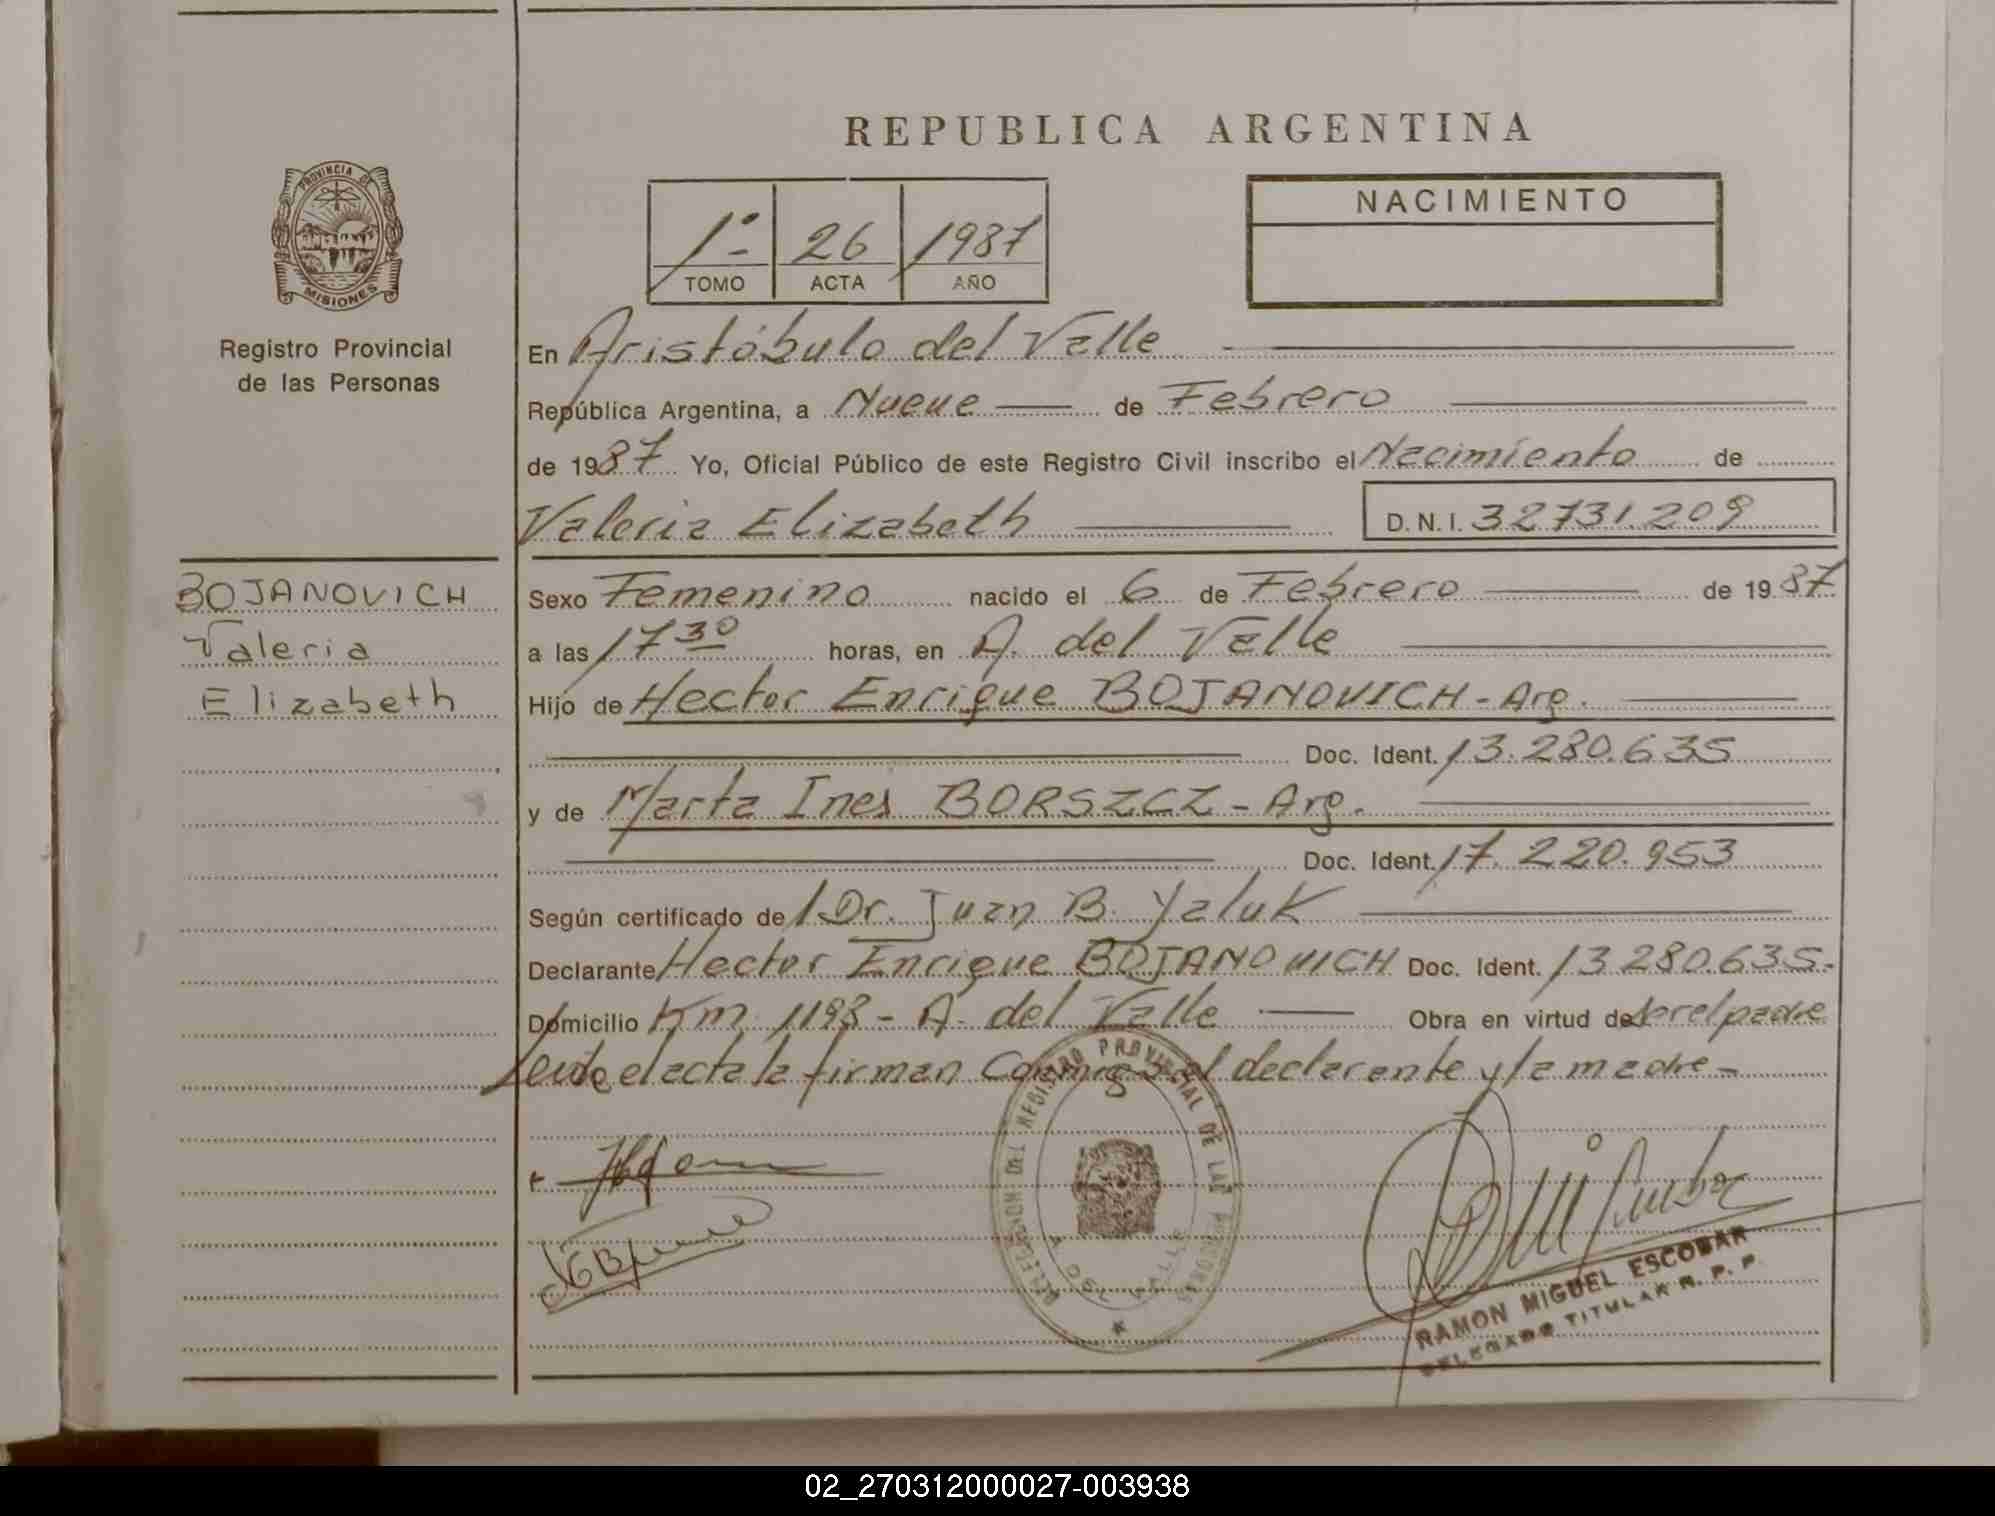 REPUBLICA ARGENTINA
PROVINCIA DE
MISIONES
Registro Provincial
de las Personas
1º
26
1987
TOMO
ACTA
AÑO
NACIMIENTO
En Aristóbulo del Valle
República Argentina, a Nueve de Febrero
de 1987 Yo, Oficial Público de este Registro Civil inscribo el Nacimiento de
Valeria Elizabeth
D.N.I. 32731.209
BOJANOVICH
Valeria
Elizabeth
Sexo Femenino nacido el 6 de Febrero de 1987
a las 17 30 horas, en A. del Valle
Hijo de Hector Enrique BOJANOVICH - Arg.
Doc. Ident. 13.280.635
y de Marta Ines BORSZCZ - Arg.
Doc. Ident. 17.220.953
Según certificado de Dr. Juan B. Yaluk
Declarante Hector Enrique BOJANOVICH Doc. Ident. 13.280.635.
Domicilio Km. 1193 - A. del Valle Obra en virtud de ser el padre
Leida el acta la firman Conmigo el declarante y la madre -
DELEGACION DEL REGISTRO PROVINCIAL DE LAS PERSONAS
A. DEL VALLE
RAMON MIGUEL ESCOBAR
DELEGADO TITULAR R. P. P.
02_270312000027-003938